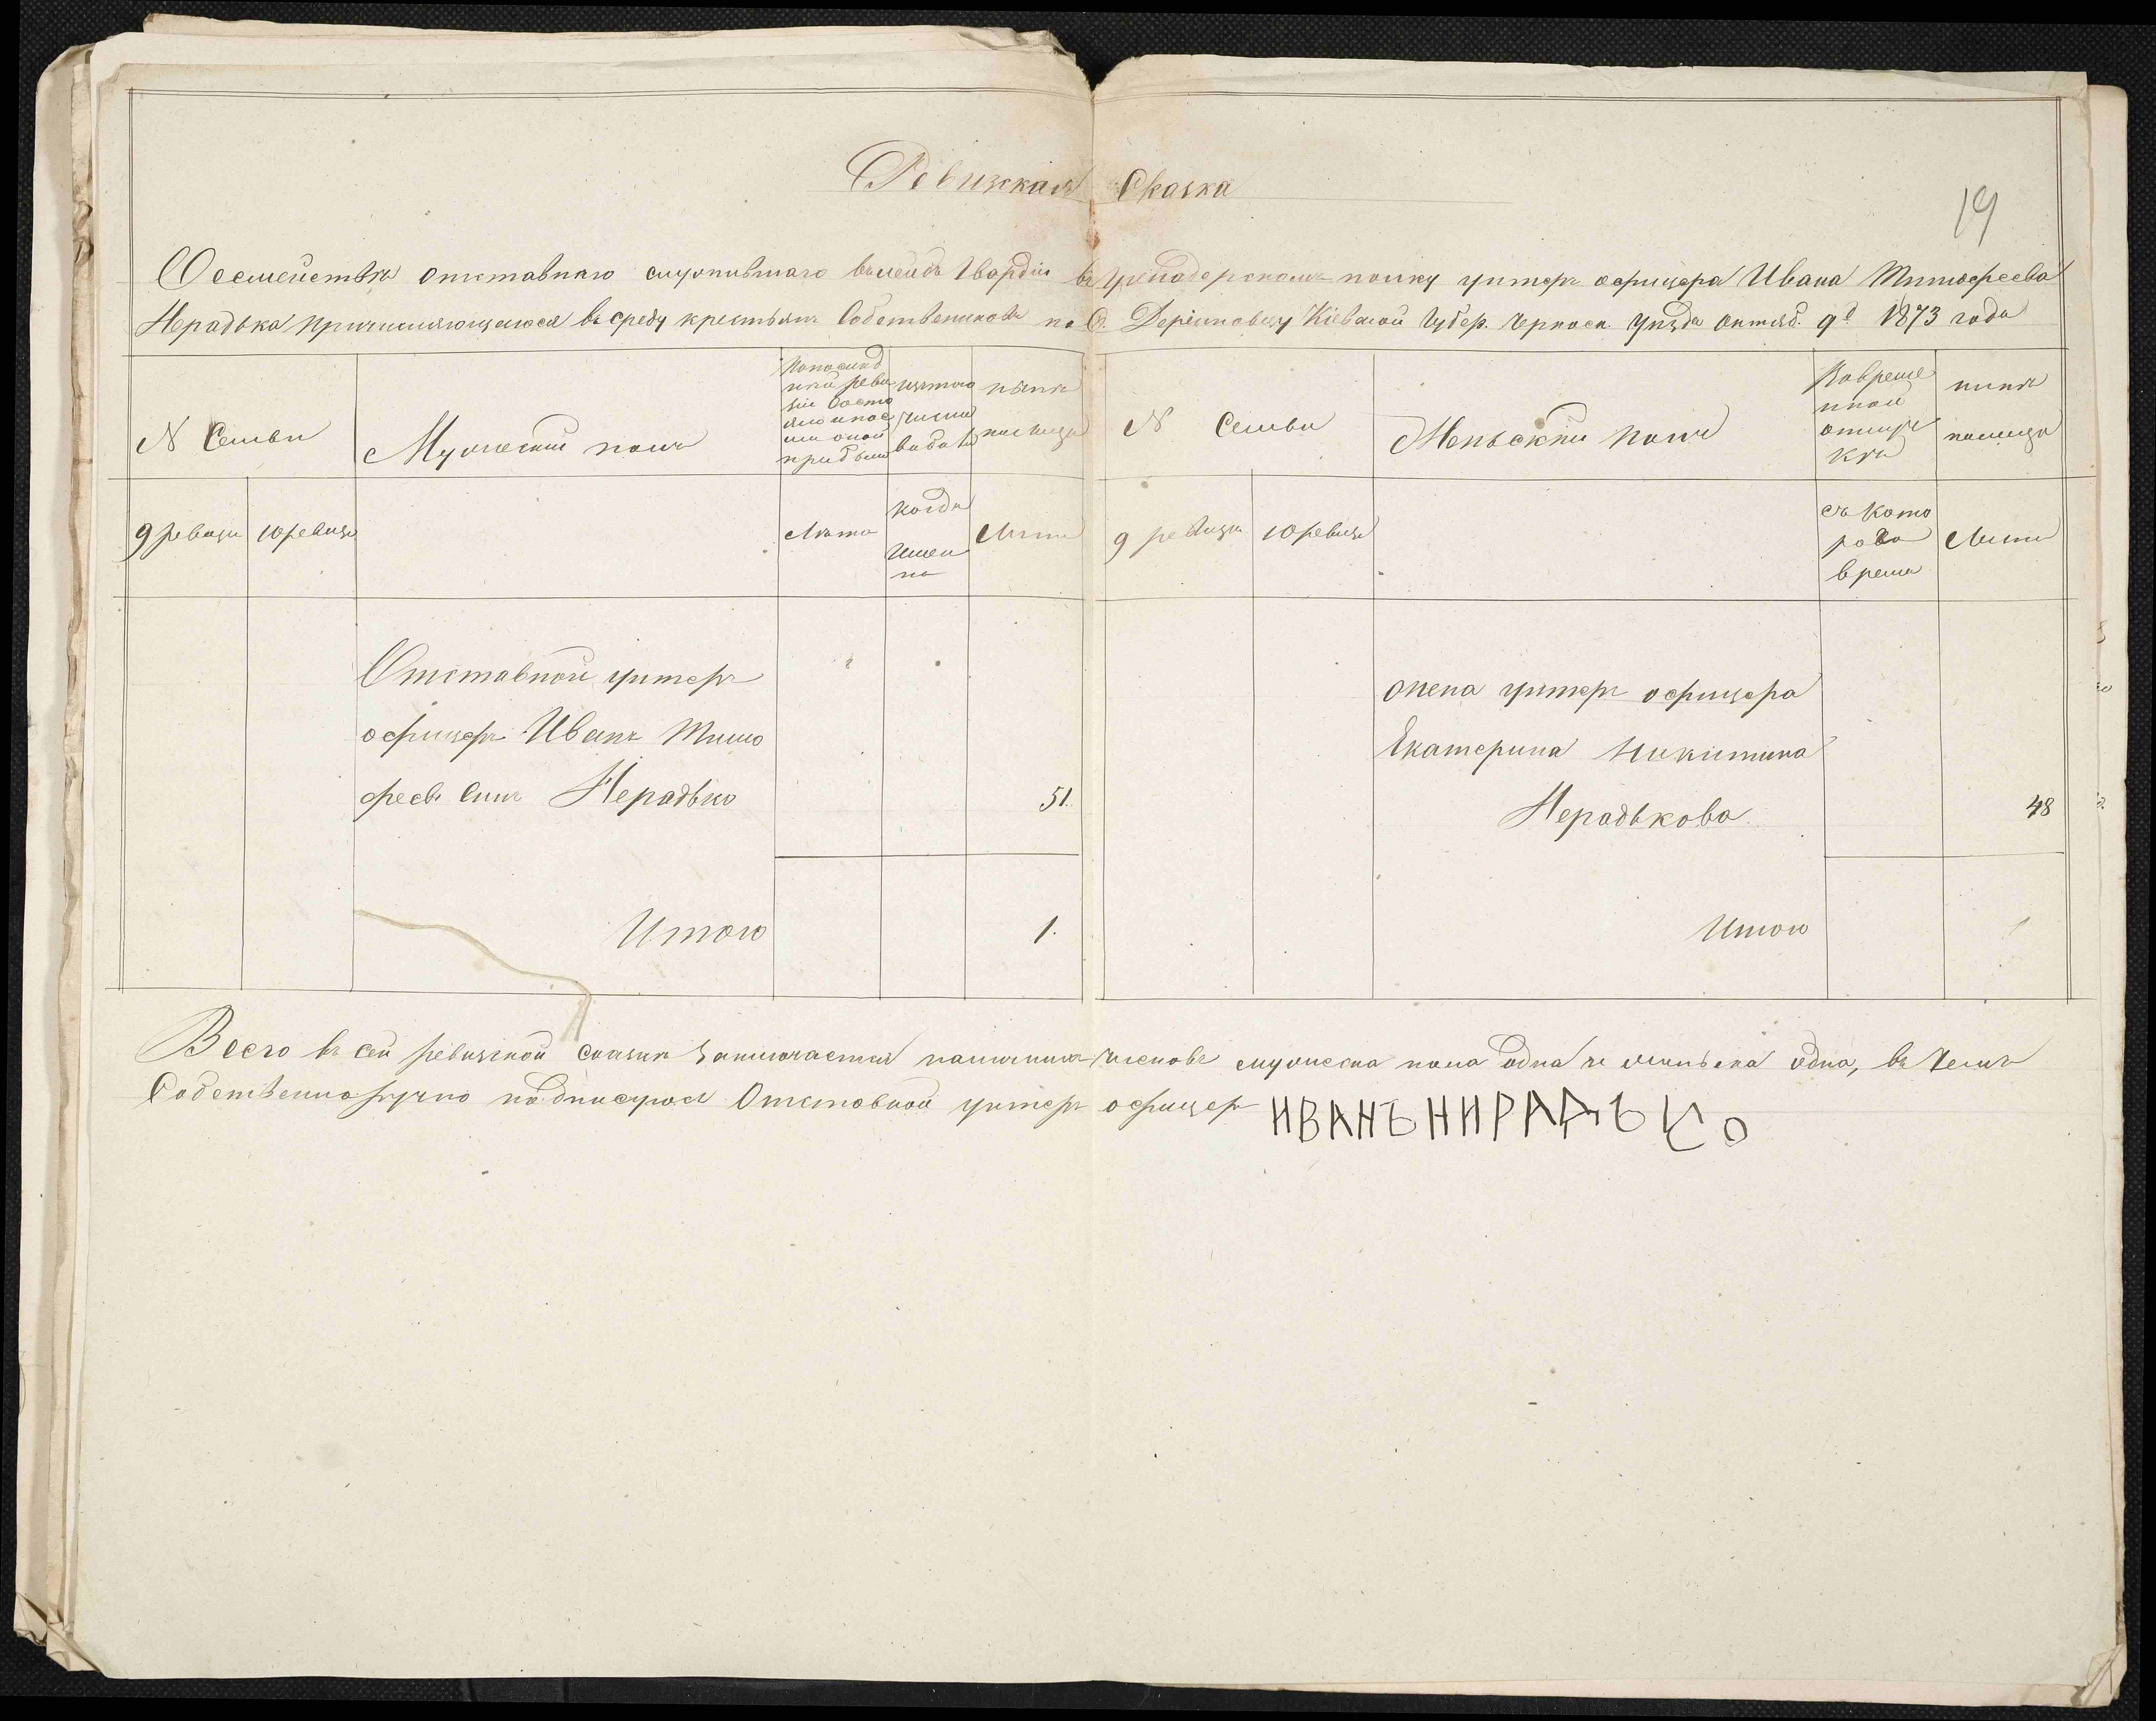 Ревизская Сказка
19
О семействѣ отставнаго служившаго въ лейбъ Гвардіи въ гренадерскомъ полку унтеръ офицера Ивана Тимофеева
Нерадька причисляющагося въ среду крестьянъ Собственниковъ по С. Деріиновцу Кіевской Губер. Черкаск. Уѣзда Октяб. 9 д 1873 года
N Семьи
Мужеский полъ
По послед
ней реви
зіи состо
яло и пос
ле оной
прибыло
изъ того
числа
выбыло
нынѣ
на лицо
N Семьи
Женьский полъ
Во време
нной
отлуч
ки
нынѣ
на лицо
9 ревизи
10 ревизи
Лѣта
когда
имен
но
Лѣта
9 ревизи
10 ревизи
съ кото
рого
время
Лѣта
Отставной унтеръ
офицеръ Иванъ Тимо
феевъ Сынъ Нерадько
51.
жена унтеръ офицера
Екатерина Никитина
Нерадькова
48
Итого
1.
Итого
1
Всего въ сей ревизской сказкѣ Заключается наличныхъ членовъ мужеска пола одна и женьска одна, въ чемъ
Собственноручно подписуюсь Отставной унтеръ офицеръ ИВАНЪ НИРАДЬКО